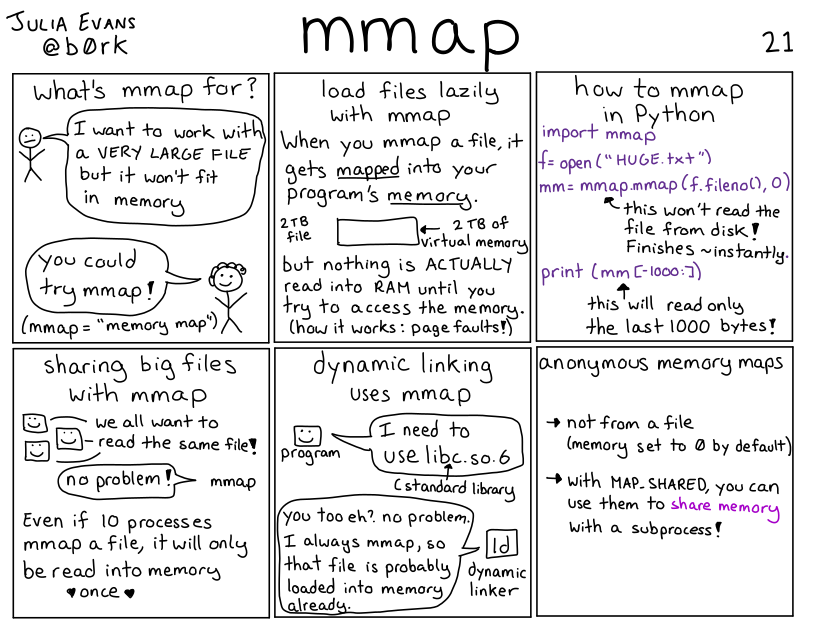 JULIA EVANS
@bØrk
mmap
21
what's mmap for?
I want to work with
a VERY LARGE FILE
but it won't fit
in memory
you could
try mmap!
(mmap = "memory map")
load files lazily
with mmap
When you mmap a file, it
gets mapped into your
program's memory.
2 TB
file
← 2 TB of
virtual memory
but nothing is ACTUALLY
read into RAM until you
try to access the memory.
(how it works: page faults!)
how to mmap
in Python
import mmap
f= open("HUGE.txt")
mm= mmap.mmap(f.fileno(), 0)
this won't read the
file from disk!
Finishes ~instantly.
print (mm[-1000:])
this will read only
the last 1000 bytes!
sharing big files
with mmap
we all want to
read the same file!
no problem!
mmap
Even if 10 processes
mmap a file, it will only
be read into memory
♥ once ♥
dynamic linking
uses mmap
program
I need to
use libc.so.6
(standard library
you too eh? no problem.
I always mmap, so
that file is probably
loaded into memory
already.
ld
dynamic
linker
anonymous memory maps
→ not from a file
(memory set to 0 by default)
→ with MAP_SHARED, you can
use them to share memory
with a subprocess!